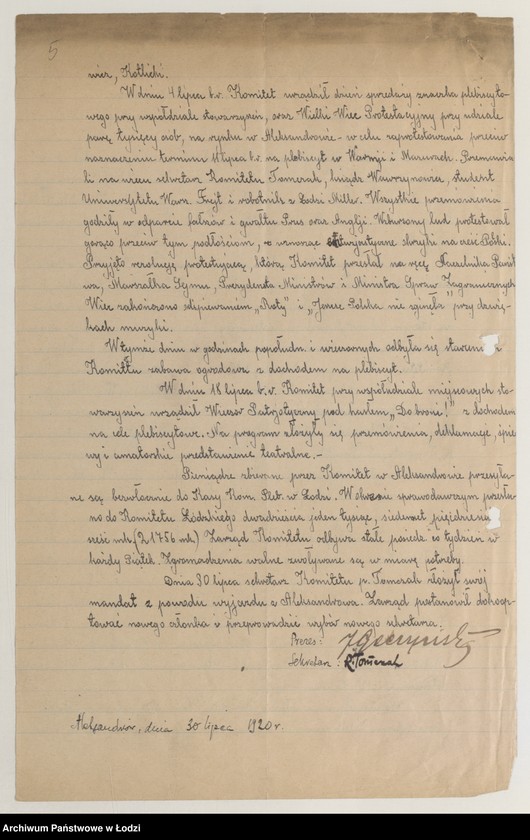 5
wier, Kotlicki.
W dniu 4 lipca b.r. Komitet urządził dzień sprzedaży znaczka plebiscyto-
wego przy współudziale stowarzyszeń, oraz Wielki Wiec Protestacyjny przy udziale
paru tysięcy osób, na rynku w Aleksandrowie - w celu zaprotestowania przeciw
naznaczeniu terminu 11 lipca b.r. na plebiscyt w Warmji i Mazurach. Przemawia-
li na wiecu sekretarz Komitetu Tomczak, ksiądz Wawrzynowicz, student
Uniwersytetu Warsz. i robotnik z Łodzi Miller. Wszystkie przemówienia
godziły w odparcie fałszów i gwałtu Prus oraz Anglji. Wzburzony lud protestował
gorąco przeciw tym podłościom, wznosząc entuzjastyczne okrzyki na cześć Polski.
Przyjęto rezolucję protestującą, którą Komitet przesłał na ręce Naczelnika Państ
wa, Marszałka Sejmu, Prezydenta Ministrów i Ministra Spraw Zagranicznych.
Wiec zakończono odśpiewaniem "Roty" i "Jeszcze Polska nie zginęła" przy dźwię-
kach muzyki.
W tymże dniu w godzinach popołudn. i wieczornych odbyła się staraniem
Komitetu zabawa ogrodowa z dochodem na plebiscyt.
W dniu 18 lipca b.r. Komitet przy współudziale miejscowych sto-
warzyszeń urządził Wieczór Patrjotyczny pod hasłem "Do broni!" z dochodem
na cele plebiscytowe. Na program złożyły się przemówienia, deklamacje, śpie
wy i amatorskie przedstawienie teatralne. -
Pieniądze zbierane przez Komitet w Aleksandrowie przesyła-
ne są bezzwłocznie do Kasy Kom. Pleb. w Łodzi. W okresie sprawozdawczym przesła-
no do Komitetu Łódzkiego dwadzieścia jeden tysięcy, siedemset pięćdziesiąt
sześć mk. (21756 mk.) Zarząd Komitetu odbywa stałe posiedz. co tydzień w
każdy Piątek. Zgromadzenia walne zwoływane są w miarę potrzeby.
Dnia 30 lipca sekretarz Komitetu p. Tomczak złożył swój
mandat z powodu wyjazdu z Aleksandrowa. Zarząd postanowił dokoop-
tować nowego członka i przeprowadzić wybór nowego sekretarza.
Prezes:
Sekretarz: R. Tomczak
Aleksandrów, dnia 30 lipca 1920 r.
Archiwum Państwowe w Łodzi